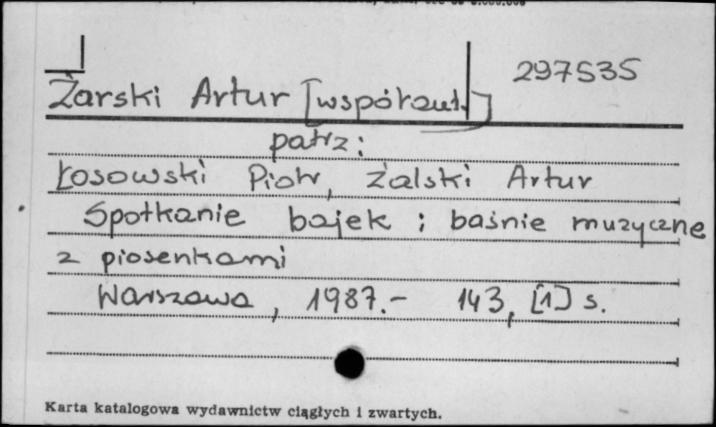 297535
Żarski Artur [współaut.]
patrz:
Łosowski Piotr, Żalski Artur
Spotkanie bajek : baśnie muzyczne
z piosenkami
Warszawa, 1987.- 143, [1] s.
Karta katalogowa wydawnictw ciągłych i zwartych.